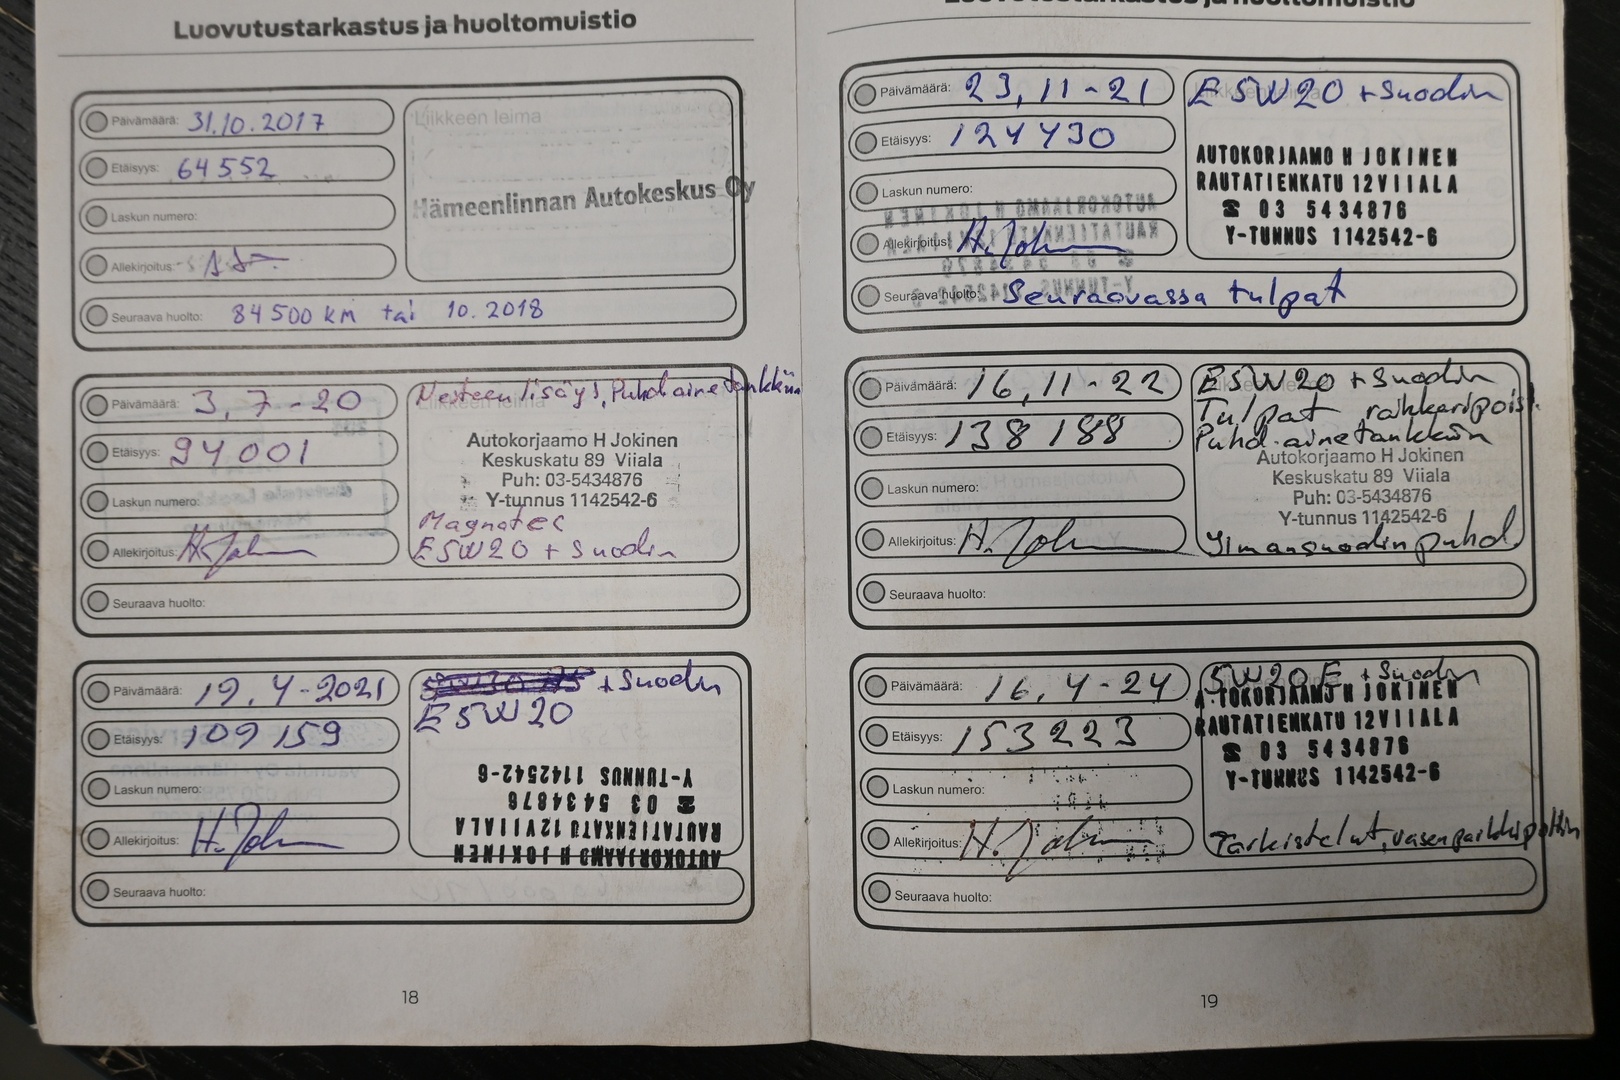 Luovutustarkastus ja huoltomuistio
Päivämäärä: 31.10.2017
Liikkeen leima
Etäisyys: 64552
Hämeenlinnan Autokeskus Oy
Laskun numero:
Allekirjoitus:
Seuraava huolto: 84500 km tai 10.2018
Päivämäärä: 3,7-20
Nesteen lisäys, Puhd.ainetankkiin
Etäisyys: 94001
Autokorjaamo H Jokinen
Keskuskatu 89 Viiala
Puh: 03-5434876
Y-tunnus 1142542-6
Laskun numero:
Magnatec
Allekirjoitus:
E5W20 + Suodin
Seuraava huolto:
Päivämäärä: 19,4-2021
+ Suodin
E5W20
Etäisyys: 109159
Laskun numero:
AUTOKORJAAMO H JOKINEN
RAUTATIENKATU 12 VIIALA
☎ 03 5434876
Y-TUNNUS 1142542-6
Allekirjoitus:
Seuraava huolto:
18
Luovutustarkastus ja huoltomuistio
Päivämäärä: 23,11-21
E5W20 + Suodin
Etäisyys: 124430
AUTOKORJAAMO H JOKINEN
RAUTATIENKATU 12 VIIALA
☎ 03 5434876
Y-TUNNUS 1142542-6
Laskun numero:
Allekirjoitus:
Seuraava huolto: Seuraavassa tulpat
Päivämäärä: 16,11-22
E5W20 + Suodin
Tulpat
Puhd.ainetankkiin
Etäisyys: 138188
Autokorjaamo H Jokinen
Keskuskatu 89 Viiala
Puh: 03-5434876
Y-tunnus 1142542-6
Laskun numero:
Allekirjoitus:
Ilmansuodin puhd.
Seuraava huolto:
Päivämäärä: 16,4-24
5W20E + Suodin
Etäisyys: 153223
AUTOKORJAAMO H JOKINEN
RAUTATIENKATU 12 VIIALA
☎ 03 5434876
Y-TUNNUS 1142542-6
Laskun numero:
Allekirjoitus:
Tarkistelut, vasen
Seuraava huolto:
19